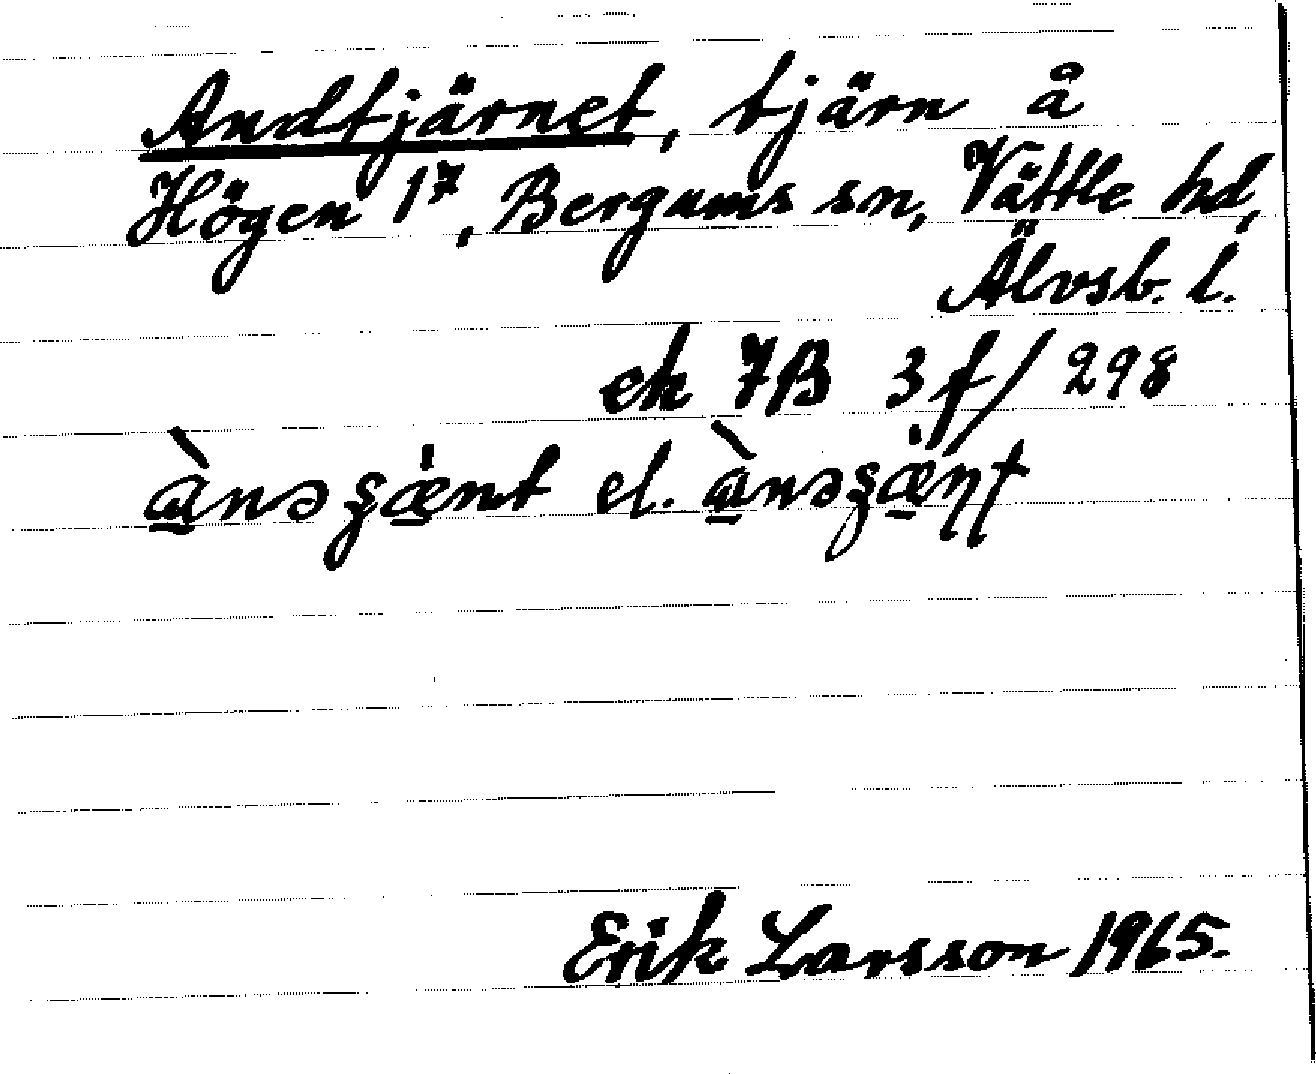 Andtjärnet, tjärn å
Högen 1⁷, Bergums sn, Vättle hd,
Älvsb. l.
ek 7B 3f/298
el.
Erik Larsson 1965.